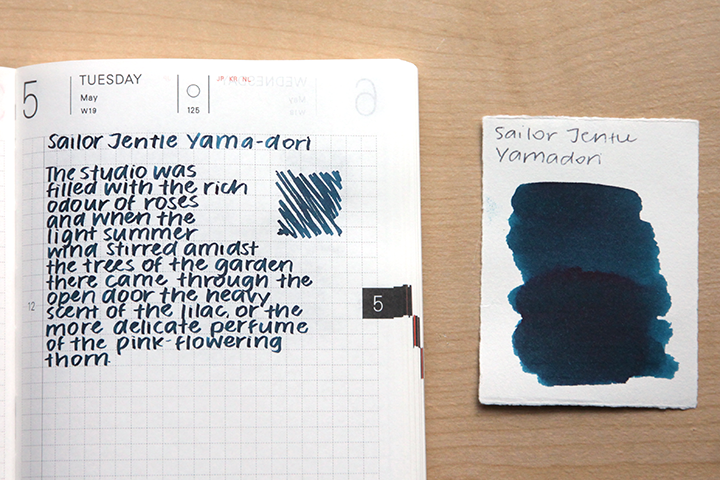 5
TUESDAY
May
W19
125
JP, KR, NL
WEDNESDAY
May
W19
6
Sailor Jentle Yama-dori
The studio was
filled with the rich
odour of roses
and when the
light summer
wind stirred amidst
the trees of the garden
there came through the
open door the heavy
12
scent of the lilac, or the
more delicate perfume
of the pink-flowering
thorn.
5
Sailor Jentle
Yamadori